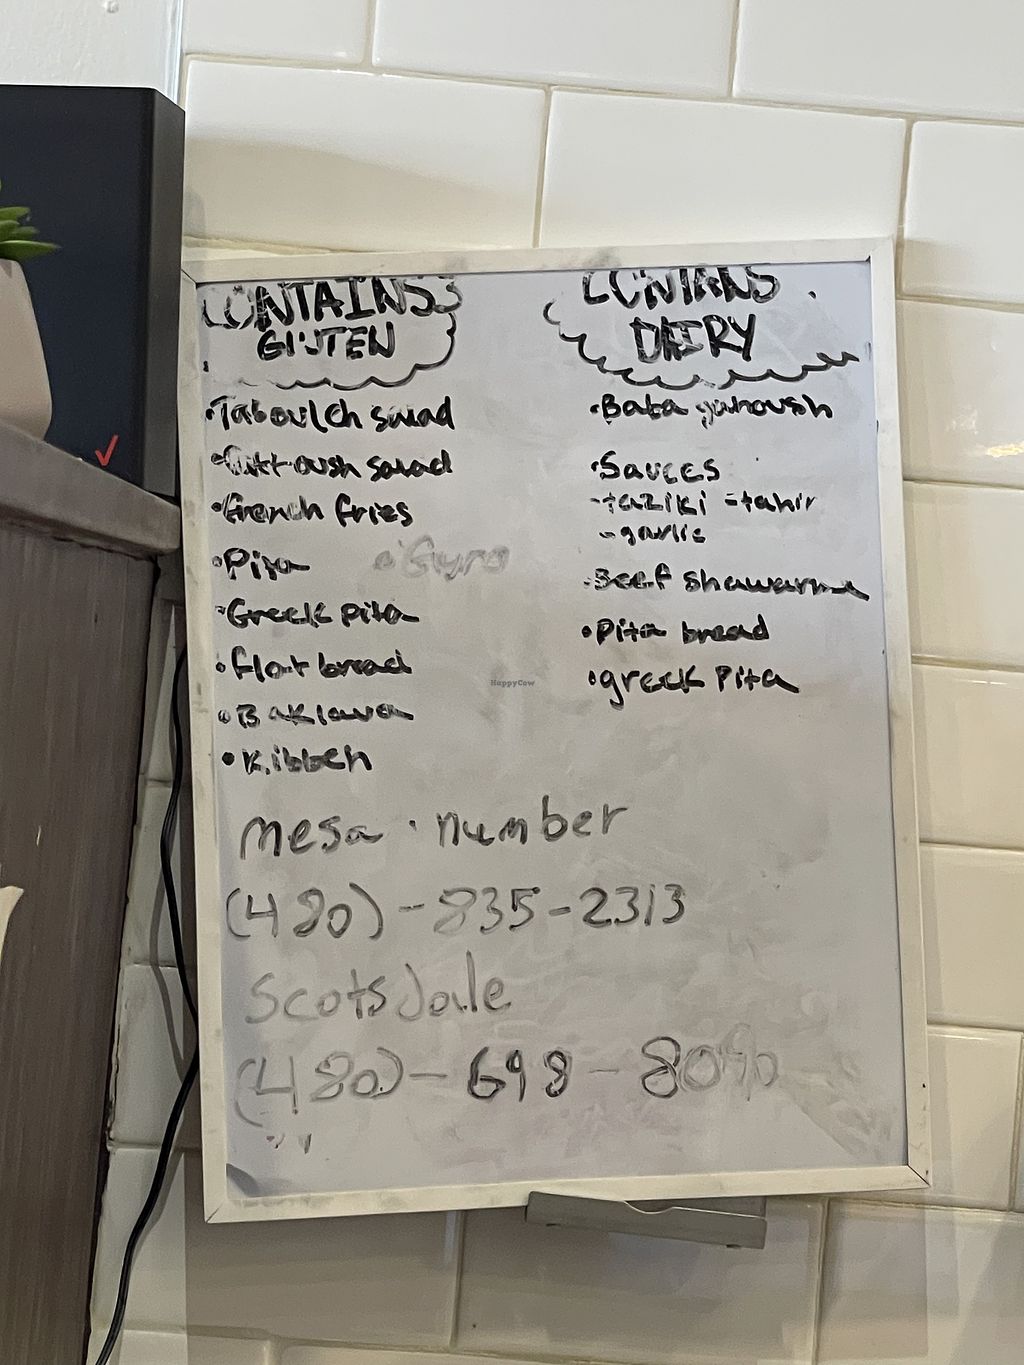 CONTAINS
GLUTEN
•Tabouleh salad
•Fattoush salad
•french fries
•Pita
•Gyro
•Greek pita
•flat bread
•Baklava
•Kibbeh
CONTIANS
DAIRY
•Baba ganoush
•Sauces
-taziki -tahir
-garlic
•Beef shawarma
•Pita bread
•greek Pita
HappyCow
mesa number
(480)-835-2313
Scotsdale
(480)-698-80